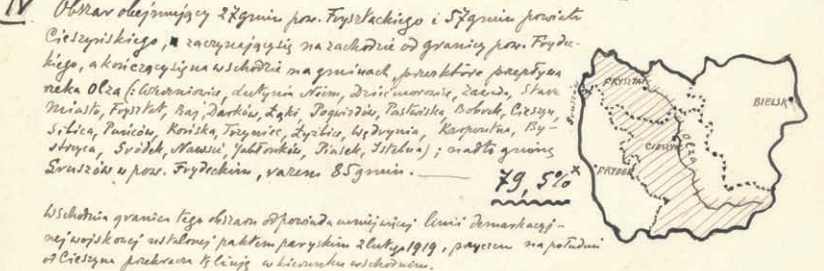 IV
Obszar obejmujący 27 gmin pow. Frysztackiego i 57 gmin powiatu
Cieszyńskiego, zaczynający się na zachodzie od granicy pow. Fryde-
kiego, a kończący się na wschodzie na gminach, przez które przepływa
rzeka Olza: (Wierzniowice, Lutynia Niem, Dziećmorowice, Zawada, Stare
Miasto, Frysztat, Raj, Darków, Łąki, Pogwizdów, Pastwiska, Bobrek, Cieszyn,
Sibica, Puńców, Końska, Trzyniec, Łyżbice, Wędrynia, Karpentna, By-
strzyca, Gródek, Nawsie, Jabłonków, Piasek, Istebna); nadto gminę
Gruszów w pow. Frydeckim, razem 85 gmin.
79,5%x
Wschodnia granica tego obszaru odpowiada mniejwięcej linii demarkacyj-
nej wojskowej ustalonej paktem paryskim 2 lutego 1919, przyczem na południe
od Cieszyna przekracza tę linję w kierunku wschodnim.
FRYSZTAT
BIELSK
CIESZYN
OLZA
FRYDEK